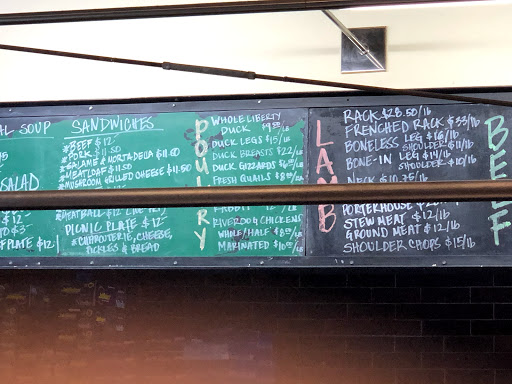 AL SOUP
SALAD
FPLATE $12
SANDWICHES
*BEEF $12
*PORK $11.50
*SALAMI & MORTADELLA $11.50
*MEATLOAF $11.50
*MUSHROOM GRILLED CHEESE $11.50
*MEATBALL $12
PICNIC PLATE $12
*CHARCUTERIE, CHEESE,
PICKLES & BREAD
POULTRY
WHOLE LIBERTY
DUCK
DUCK LEGS $15/LB
DUCK BREASTS $22/LB
DUCK GIZZARDS
FRESH QUAILS $8/EA
RABBIT
RIVERDOG CHICKENS
WHOLE/HALF
MARINATED
LAMB
RACK $28.50/lb
FRENCHED RACK $33/lb
BONELESS LEG $16/lb
SHOULDER $11/lb
BONE-IN LEG $14/lb
SHOULDER $10/lb
NECK $10.75/lb
PORTERHOUSE
STEW MEAT $12/lb
GROUND MEAT $12/lb
SHOULDER CHOPS $15/lb
BEEF